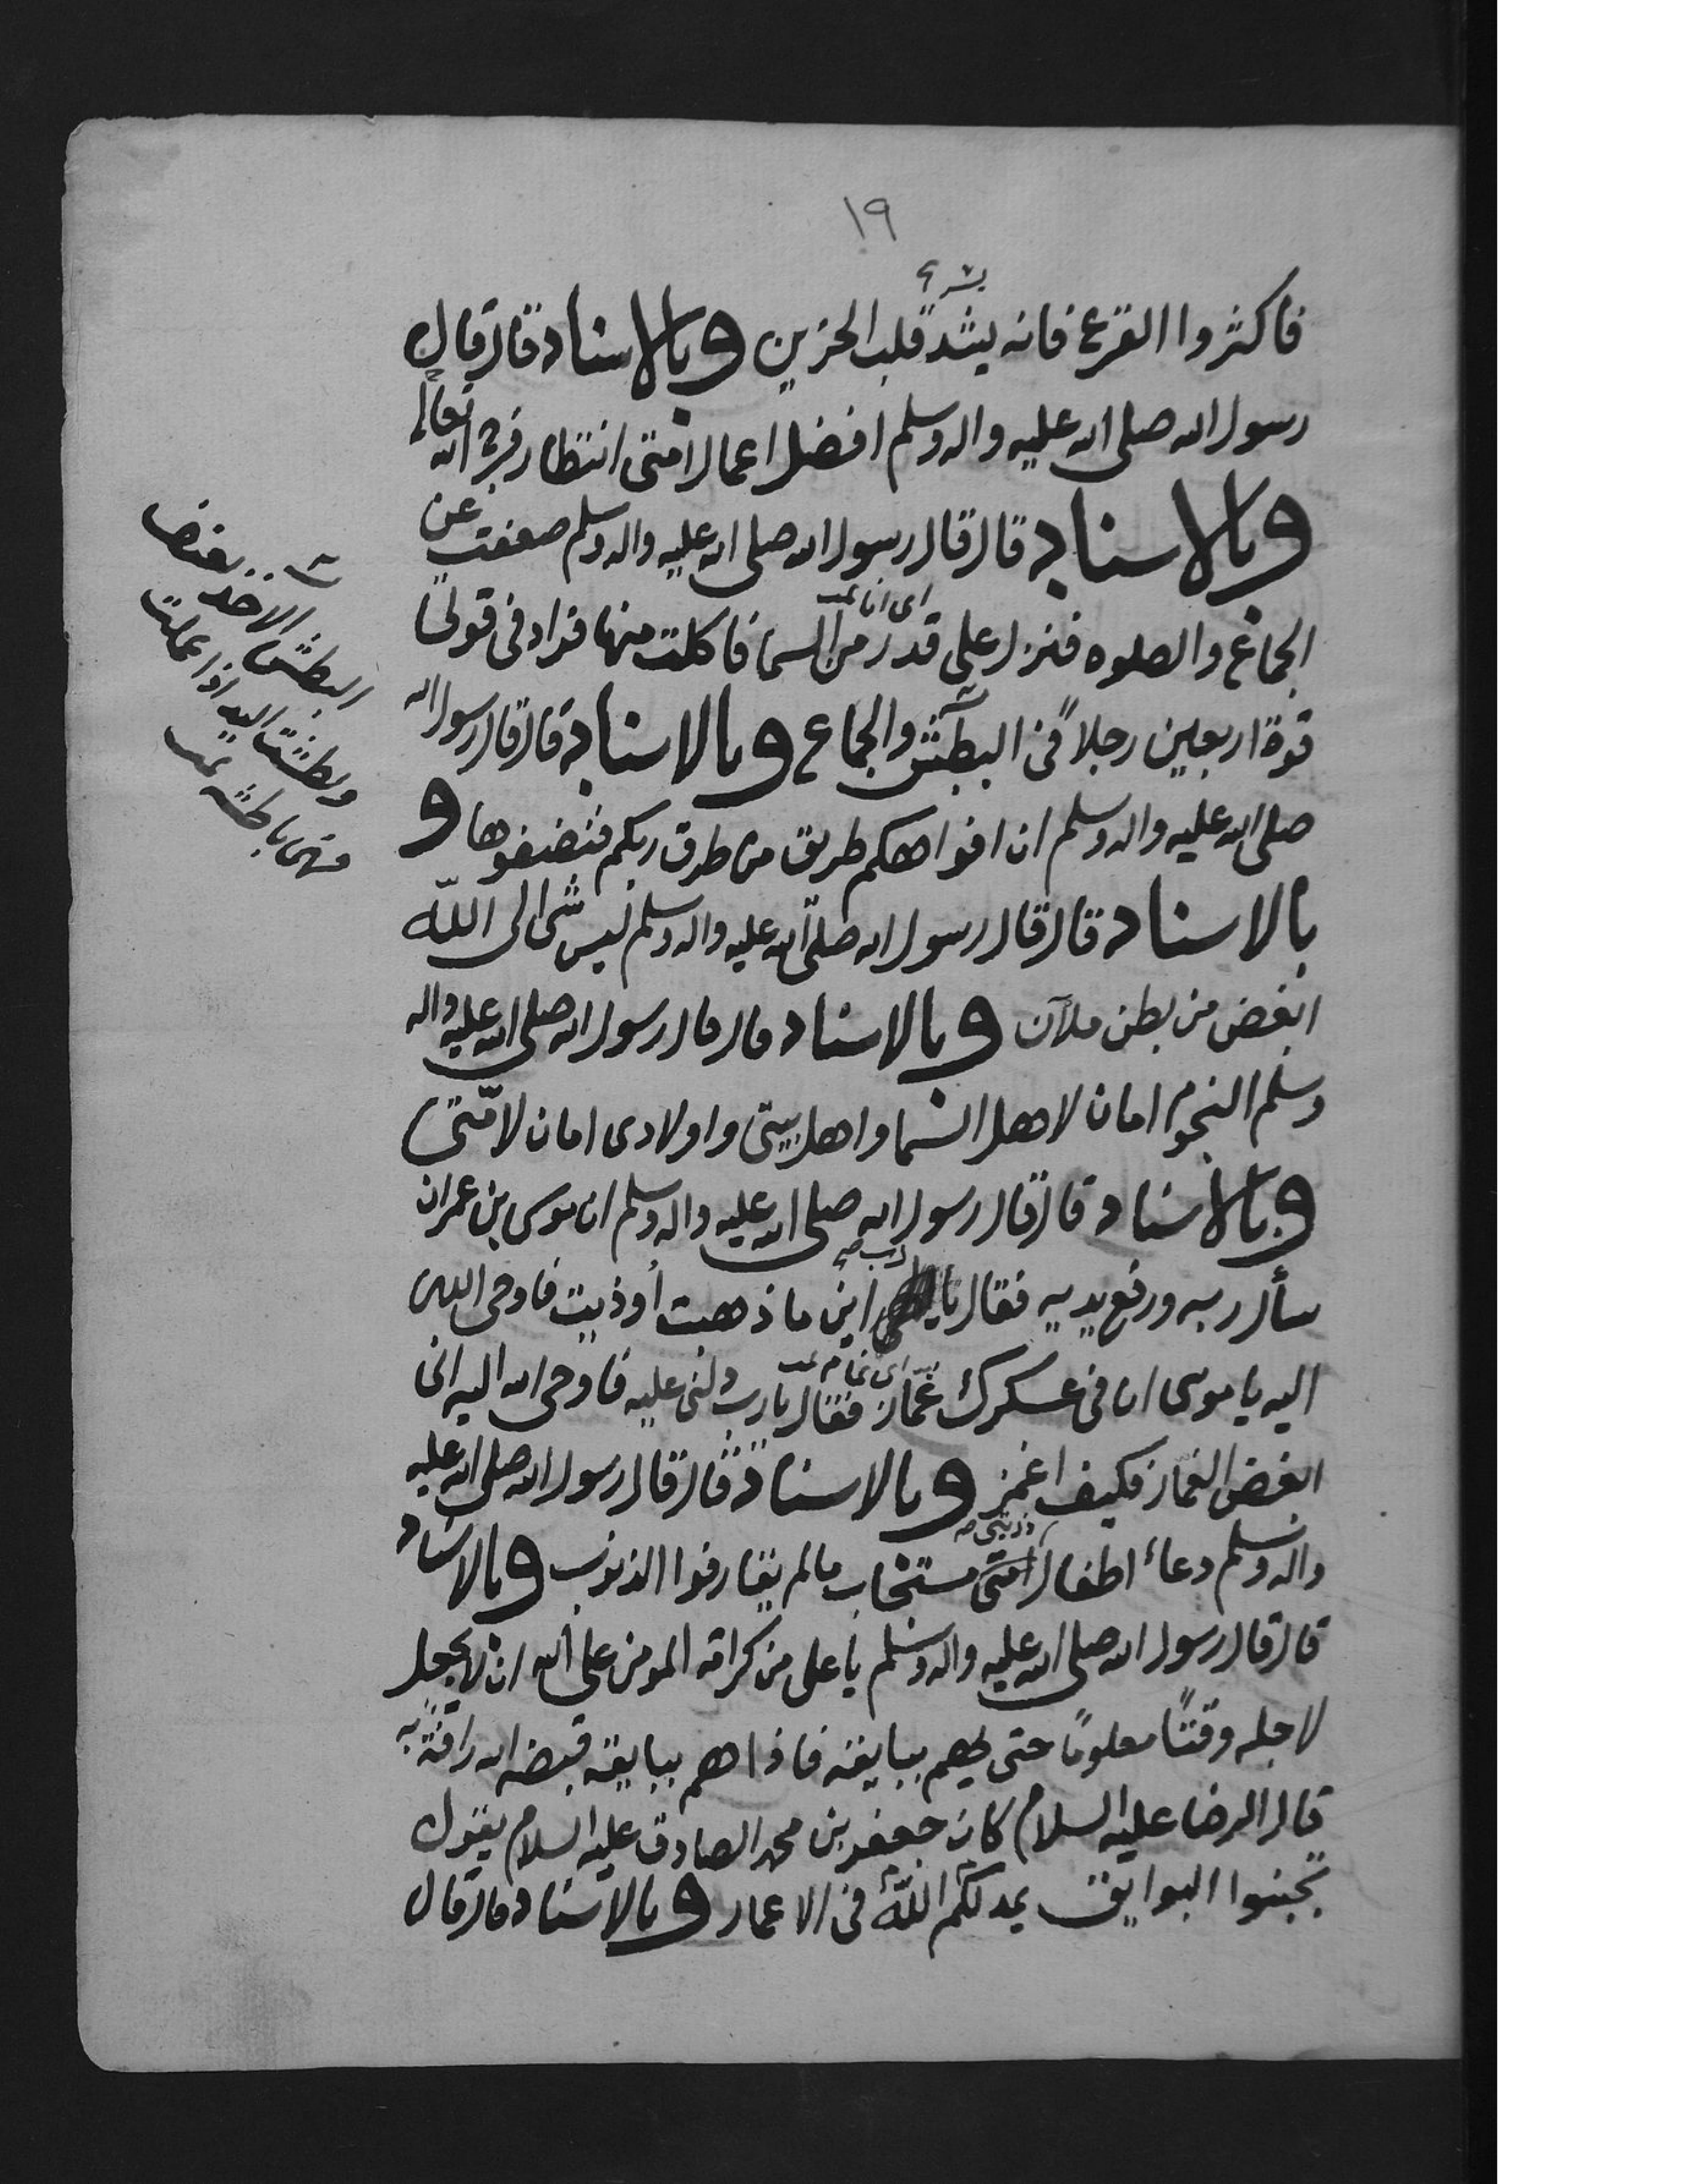 ١٩
يسر
فاكثروا القرع فانه يشد قلب الحزين وبالاسناد قال قال
رسول الله صلى الله عليه واله وسلم افضل اعمال امتى انتظار فرج الله تعالى
وبالاسناد قال قال رسول الله صلى الله عليه واله وسلم ضعفت عن
اى اناء
الجماع والصلوه فنزل على قدر من السما فاكلت منها فزاد فى قوتى
قوة اربعين رجلاً فى البطش والجماع وبالاسناد قال قال رسول الله
صلى الله عليه واله وسلم ان افواهكم طريق من طرق ربكم فنضفوها و
بالاسناد قال قال رسول الله صلى الله عليه واله وسلم ليس شى الى اللّه
ابغض من بطن ملآن وبالاسناد قال قال رسول الله صلى الله عليه واله
وسلم النجوم امان لاهل السما واهل بيتى واولادى امان لامّتى
وبالاسناد قال قال رسول الله صلى الله عليه واله وسلم ان موسى بن عمران
رب
سأل ربه ورفع يديه فقال يا اين ما ذهبت أوذيت فاوحى الله
اى نمام
اليه يا موسى ان فى عسكرك غمّاز فقال يا رب دلنى عليه فاوحى الله اليه انى
ابغض الغماز فكيف اغمز وبالاسناد قال قال رسول الله صلى الله عليه
ذريتى
واله وسلم دعاء اطفال امتى مستجاب ما لم يقارفوا الذنوب وبالاسناد
قال قال رسول الله صلى الله عليه واله وسلم يا على من كرامة المومن على الله ان لا يجعل
لاجله وقتًا معلومًا حتى يهم ببايقه فاذا هم ببايقه قبضه الله رافة به
قال الرضا عليه السلام كان جعفر بن محمد الصادق عليه السلام يقول
تجنبوا البوايق يمد لكم اللّه فى الاعمار وبالاسناد قال قال
البطش الاخذ بعنف
وبطشت اليد اذا عملت
فهى باطشه